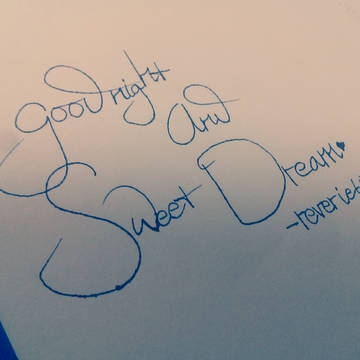 Goodnight
And
Sweet Dream